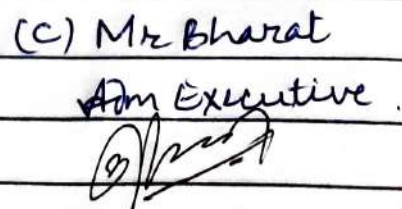 (C) Mr Bharat
Adm Executive.